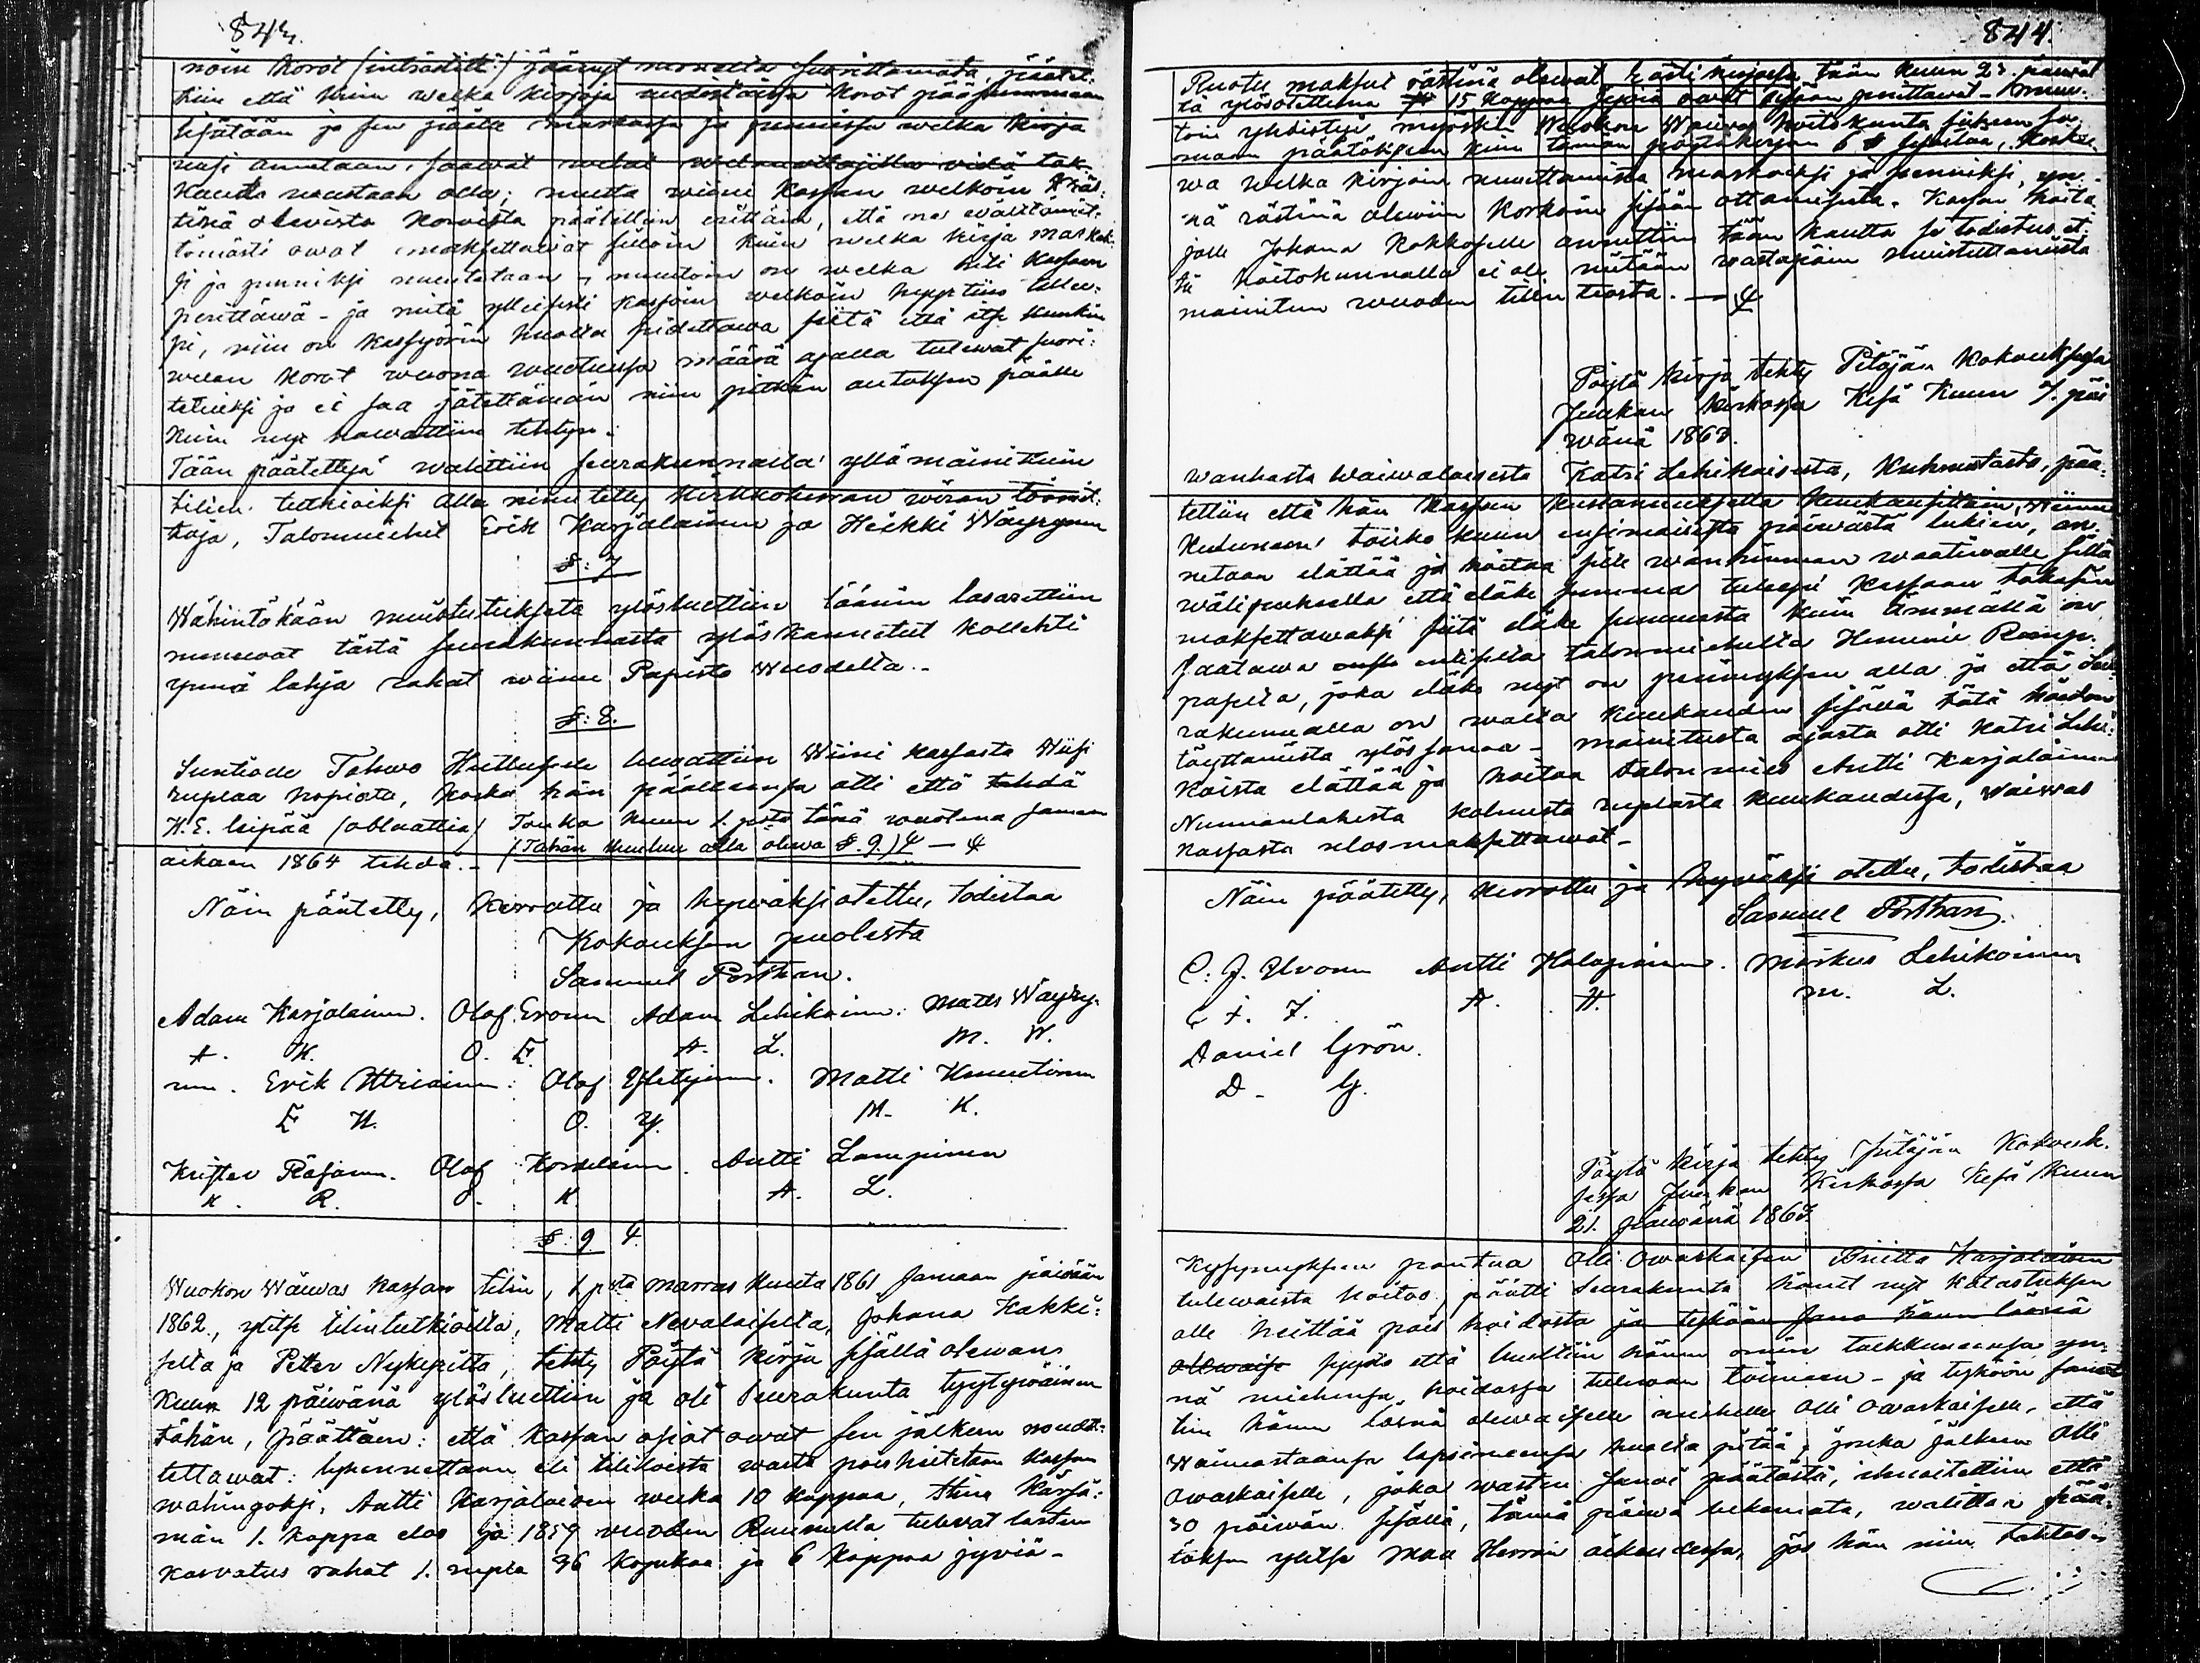 843.
niin korot jäänyt monelta suorittamata, päätet-
tiin että kuin welka kirjoja uudistaissa korot pääsummaan
lisätään ja sen päälle markassa ja pennissä welka kirja
uusi annetaan, saawat welat
kauds wastaan olla; mutta wiini kassan welkoin
tinä olewista koroista päätettiin erittäin, että ne wälttämät-
tömästi owat maksettawat silloin kuin welka kirja markak-
si ja penniksi muutetaan, muutoin on welka kassaan
perittäwä - ja mitä ylleisesti kassoin welkoin tulee-
pi, niin on kassyörin huolta pidettäwä siitä että itse kunkin
welan korot wuona wuotuissa määrä ajalla tulewat suori-
tetuiksi ja ei saa jätettämän niin pitkän autuksen päälle
kuin nyt hawaittiin tehtyn.
Tään päätettyä walittiin seurakunnalta yllämainittuin
tilien tutkioiksi alla nimitetty kirkkoherran wiran toimit-
taja, Talonmiehet Erik Karjalainen ja Heikki Wäyrynen
§: 7
Wähintäkään muistutuksata ylösluettiin läänin lasarettiin
menewät tästä seurakunnasta ylös kannetut kollehti
ynnä lahja rahat wiime Papisto Wuodelta.-
§: 8.
Suntiolle Tahwo Huttuselle luwattiin Wiini kassasta Wiisi
ruplaa hopiata, koska hän päällensä otti että tehdä
H. E. leipää (oblaattia) Touko kuun 1. pstä tänä wuotena samaan
aikaan 1864 tehdä.- (Tähän kuuluu alla olewa §. 9.)
Näin päätetty, kerrottu ja hywäksi otettu, todistaa
Kokouksen puolesta
Samuel Porthan.
Adam Karjalainen. Olof Eronen Adam Lehikoinen. Matts Wäyry-
A. K. O. E. A. L. M. W.
nen. Erik Olof Matti
E H. O. Y. M. K.
Krister Räsänen. Olof Antti Lampinen
K. R. O. K. A. L.
§: 9
Wuokon Waiwas kassan tilin, 1 pstä marras kuuta 1861 samaan päiwään
1862, ylitse tilintutkioilta, Matti Nevalaiselta, Johana Kakki-
selta ja Petter Nykyristä, tehty Pöytä kirja sisällä olewans
kuun 12 päiwänä ylösluettiin ja oli Seurakunta tyytywäinen
tähän, päättäen: että kassan asiat owat sen jälkeen noudat-
tettawat: lykennettään eli tilikoista wasta poisheitetään kassan
wahingoksi, Antti Karjalaisen welka 10 kappaa, Stina Kärjä-
män 1. kappa eloo ja 1859 vuoden Ruunulta tulevat lasten
kasvatus rahat 1. rupla 36 kopekaa ja 6 kappaa jyviä-
844.
Ruotu maksut rästinä olewat tään kuun 23. päiwäl-
tä ylösotettuna 15 kappaa jyviä owat perittäwät -
toin yhdistyi myöskin Wuokon Waiwas hoitokunta siihen sa-
maan päätökseen kuin tämän pöytäkirjan 6 § sisältää, koske-
wa welka kirjain muuttamista markoiksi ja penniksi, yn-
nä rästinä olewiin korkoin sisään ottamisesta. Kassan hoita-
jalle Johana Kakkoselle annettiin tään kautta se todistus et-
tä hoitokunnalla ei ole mitään wastapäin muistuttamista
mainitun wuoden tilin teosta. -
Pöytä kirja tehty Pitäjän Kokouksessa
Juukan kirkossa Kesä Kuun 7. päi
wänä 1863.
Wanhasta Waiwalaisesta Katri Lehikoisesta, Kuhnustasta, pää-
tettiin että hän kassan kustannuksella kuukausittain, Wiime
kuluneen touko kuun ensimäisestä päiwästä lukien, an-
netaan elättää ja hoitaa sille wanhimman waatiwalle sillä
wälipuhella että eläke summa tuleepi kassaan takasin
maksettawaksi siitä eläke summasta kuin ämmällä on
saatawa entiseltä talonmieheltä Hemmin Romp-
paselta, joka eläke nyt on perimyksen alla ja että Seu-
rakunnalla on walta kuukauden sisällä tätä hoidon
täyttämistä ylös sanoa - mainitusta ajasta otti Katri Lehi-
koista elättää ja hoitaa talonmies Antti Karjalainen
Nunnanlahesta kolmesta ruplasta kuukaudessa, Waiwas
kassasta ulosmaksettawat -
Näin päätetty, kerrottu ja hywäksi otettu, todistaa
Samuel Porthan.
C. J. Antti Halopainen. Markus Lehikoinen
A. H. M. L.
Daniel Grön.
D - G.
Pöytä kirja tehty Pitäjän Kokouk-
sessa Juukan Kirkossa Kesä Kuun
21. päiwänä 1863.
Kysymyksen pantua Olli Owaskaisen Priitta Karjalaisen
tulewaista hoitoo, päätti Seurakunta hänet nyt
alle heittää pois hoidosta ja tykään sano hänen läsnä
olewaise syystä että luultiin hänen omin taekkuneensa yn-
nä miehensä hoidossa tulewan toimeen - ja tyköön sanot-
tiin hänen läsnä olewaiselle miehelle Olli Owaskaiselle, että
Waimostaansa lapsineensa huolta pitää; jonka jälkeen Olli
Owaskaiselle, joka wastaan sanoi päätöstä, ilmoitettiin että
30 päiwän sisällä, tämä päiwä lukemata, walittaa pää-
töksen ylitse Maa Herran oikeudessa, jos hän niin tahtoo -